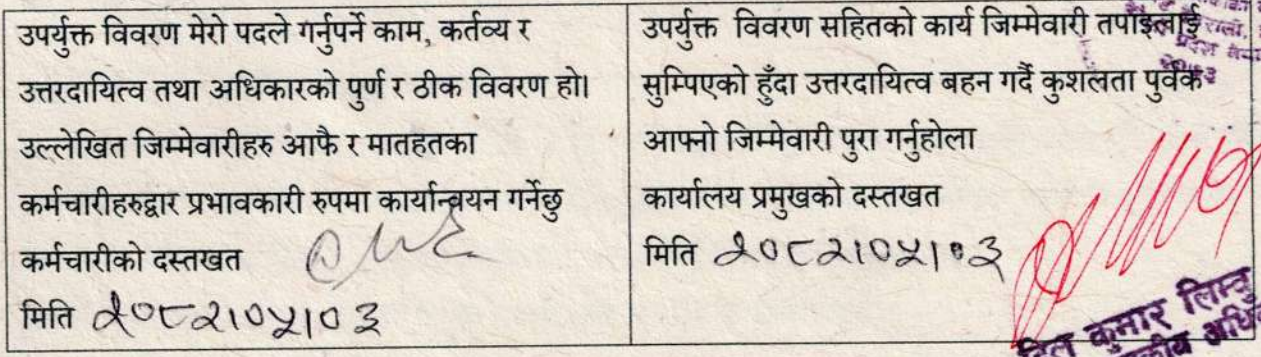 उपर्युक्त विवरण मेरो पदले गर्नुपर्ने काम, कर्तव्य र
उत्तरदायित्व तथा अधिकारको पुर्ण र ठीक विवरण हो।
उल्लेखित जिम्मेवारीहरु आफै र मातहतका
कर्मचारीहरुद्वार प्रभावकारी रुपमा कार्यान्वयन गर्नेछु
कर्मचारीको दस्तखत
मिति २०८२।०५।०३
उपर्युक्त विवरण सहितको कार्य जिम्मेवारी तपाइलाई
सुम्पिएको हुँदा उत्तरदायित्व बहन गर्दै कुशलता पुर्वक
आफ्नो जिम्मेवारी पुरा गर्नुहोला
कार्यालय प्रमुखको दस्तखत
मिति २०८२।०५।०३
कुमार लिम्बु